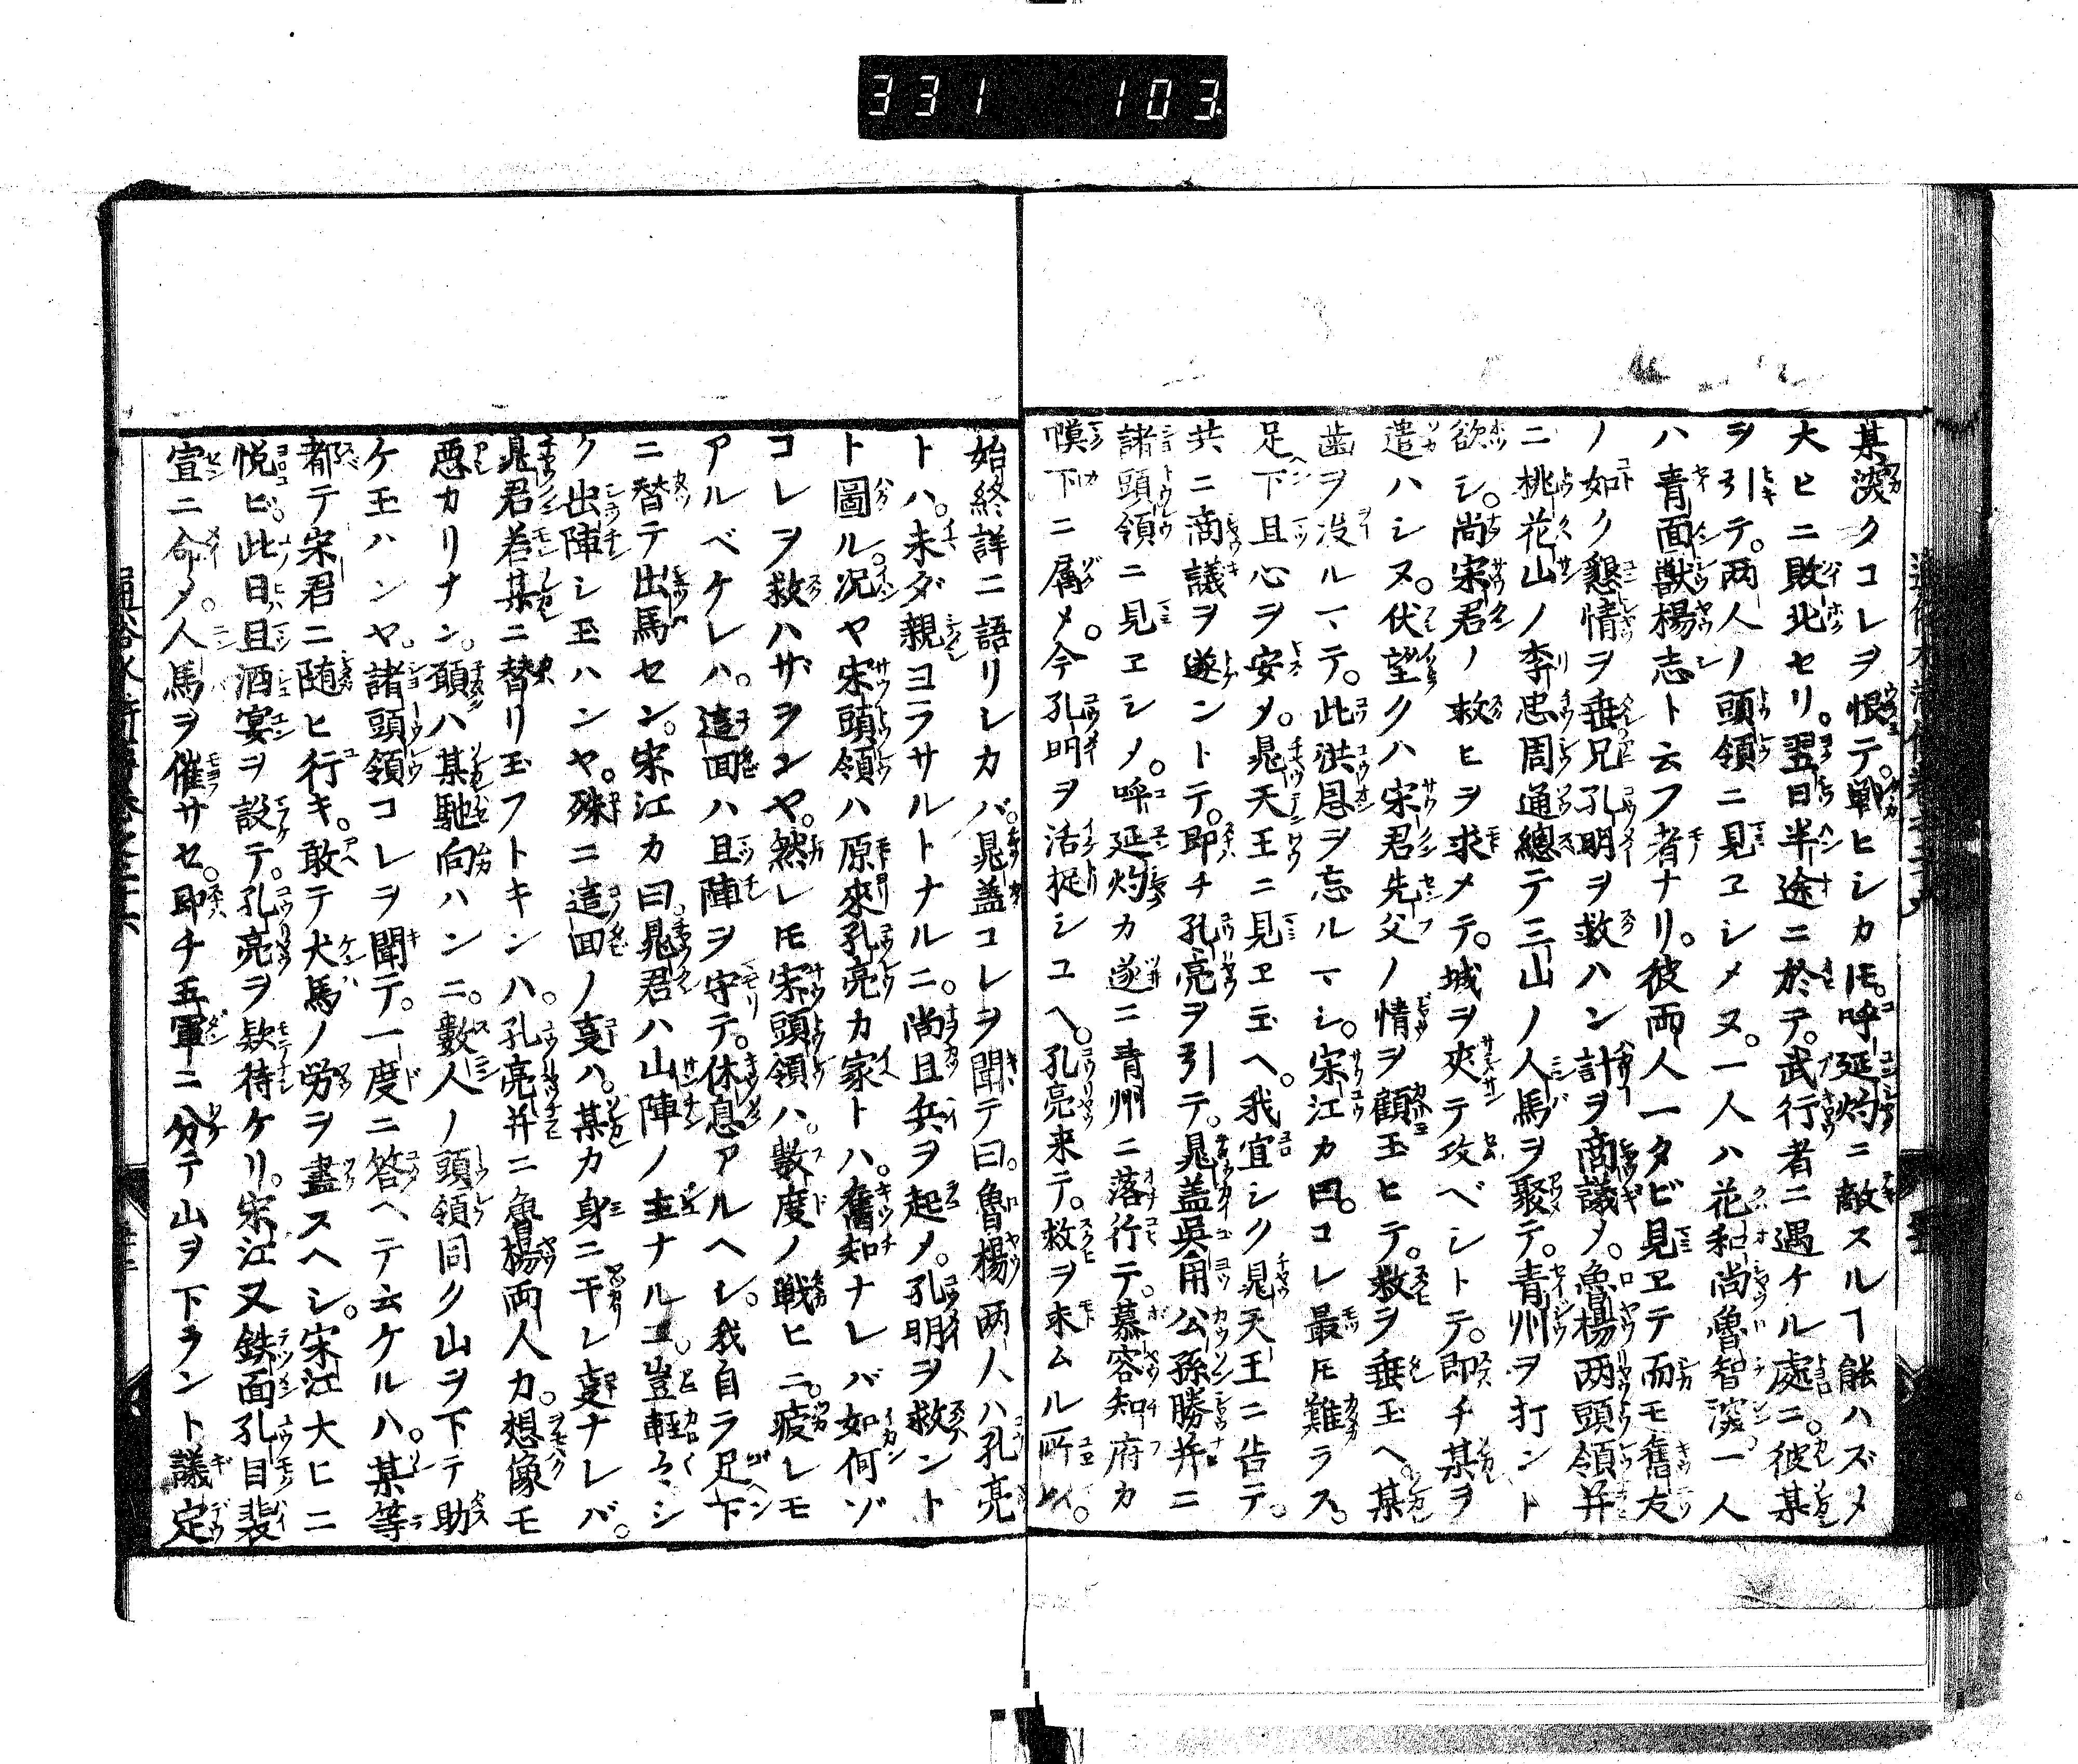 331 103
某深クコレヲ恨テ。戦ヒシカ𪜈。呼延灼ニ敵スルヿ能ハズメ
大ヒニ敗北セリ。翌日半途ニ於テ。武行者ニ遇ケル處ニ。彼某
ヲ引テ。両人ノ頭領ニ見ヱシメヌ。一人ハ花和尚魯智深。一人
ハ青面獣楊志ト云フ者ナリ。彼両人一タビ見ヱテ而モ舊友
ノ如ク懇情ヲ垂兄孔明ヲ救ハン計ヲ商議メ。魯楊两頭領并
ニ桃花山ノ李忠周通總テ三山ノ人馬ヲ聚テ。青州ヲ打ント
欲シ。尚宋君ノ救ヒヲ求メテ。城ヲ夾テ攻ベシトテ。即チ某ヲ
遣ハシヌ。伏望クハ宋君先父ノ情ヲ顧玉ヒテ。救ヲ垂玉ヘ。某
歯ヲ没ルマヽテ。此洪恩ヲ忘ルマシ。宋江カ曰。コレ最𪜈難ラス。
足下且心ヲ安メ。晁天王ニ見ヱ玉ヘ。我宜シク晁天王ニ告テ。
共ニ商議ヲ遂ントテ。即チ孔亮ヲ引テ。晁盖吳用公孫勝并ニ
諸頭領ニ見ヱシメ。呼延灼カ遂ニ青州ニ落行テ。慕容知府カ
幙下ニ属メ。今孔明ヲ活捉シユヘ。孔亮来テ。救ヲ求ムル所以。
始終詳ニ語リシカバ。晁盖コレヲ聞テ曰。魯楊两人ハ孔亮
トハ。未ダ親ヨラサルトナルニ。尚且兵ヲ起メ。孔明ヲ救ント
ト圖ル。况ヤ宋頭領ハ原來孔亮カ家トハ。舊知ナレバ如何ゾ
コレヲ救ハザヲンヤ。然レ𪜈宋頭領ハ。數度ノ戦ヒニ。疲レモ
アルベケレハ。這囬ハ且陣ヲ守テ。休息アルヘシ。我自ラ足下
ニ替テ出馬セン。宋江カ曰。晁君ハ山陣ノ主ナルニ。豈軽〻シ
ク出陣シ玉ハンヤ。殊ニ這回ノ㕝ハ。某カ身ニ干レ㕝ナレバ。
晁君若某ニ替リ玉フトキンハ。孔亮并ニ魯楊両人カ。想像モ
惡カリナン。願ハ某馳向ハンニ。數人ノ頭領同ク山ヲ下テ助
ケ玉ハンヤ。諸頭領コレヲ聞テ。一度ニ答ヘテ云ケルハ。某等
都テ宋君ニ随ヒ行キ。敢テ犬馬ノ労ヲ盡スヘシ。宋江大ヒニ
悦ビ。此日且酒宴ヲ設テ。孔亮ヲ欵待ケリ。宋江又鉄面孔目裴
宣ニ命メ。人馬ヲ催サセ。即チ五軍ニ分テ山ヲ下ラント議定